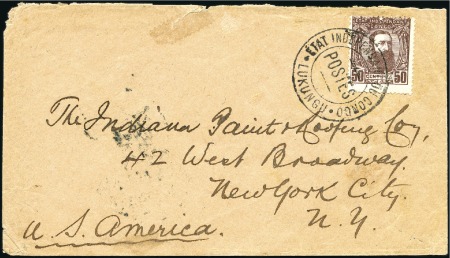 ÉTAT INDÉPENDANT DU CONGO
LUKUNGU
POSTES
50 50
The Indiana Paint & Roofing Coy,
42 West Broadway.
New York City.
N.Y.
U.S. America.